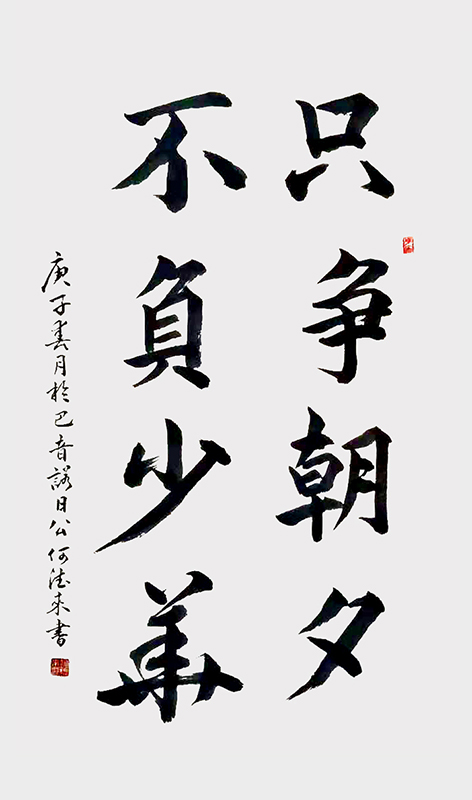 只争朝夕
不負少華
庚子春月於巴音諾日公何德来書